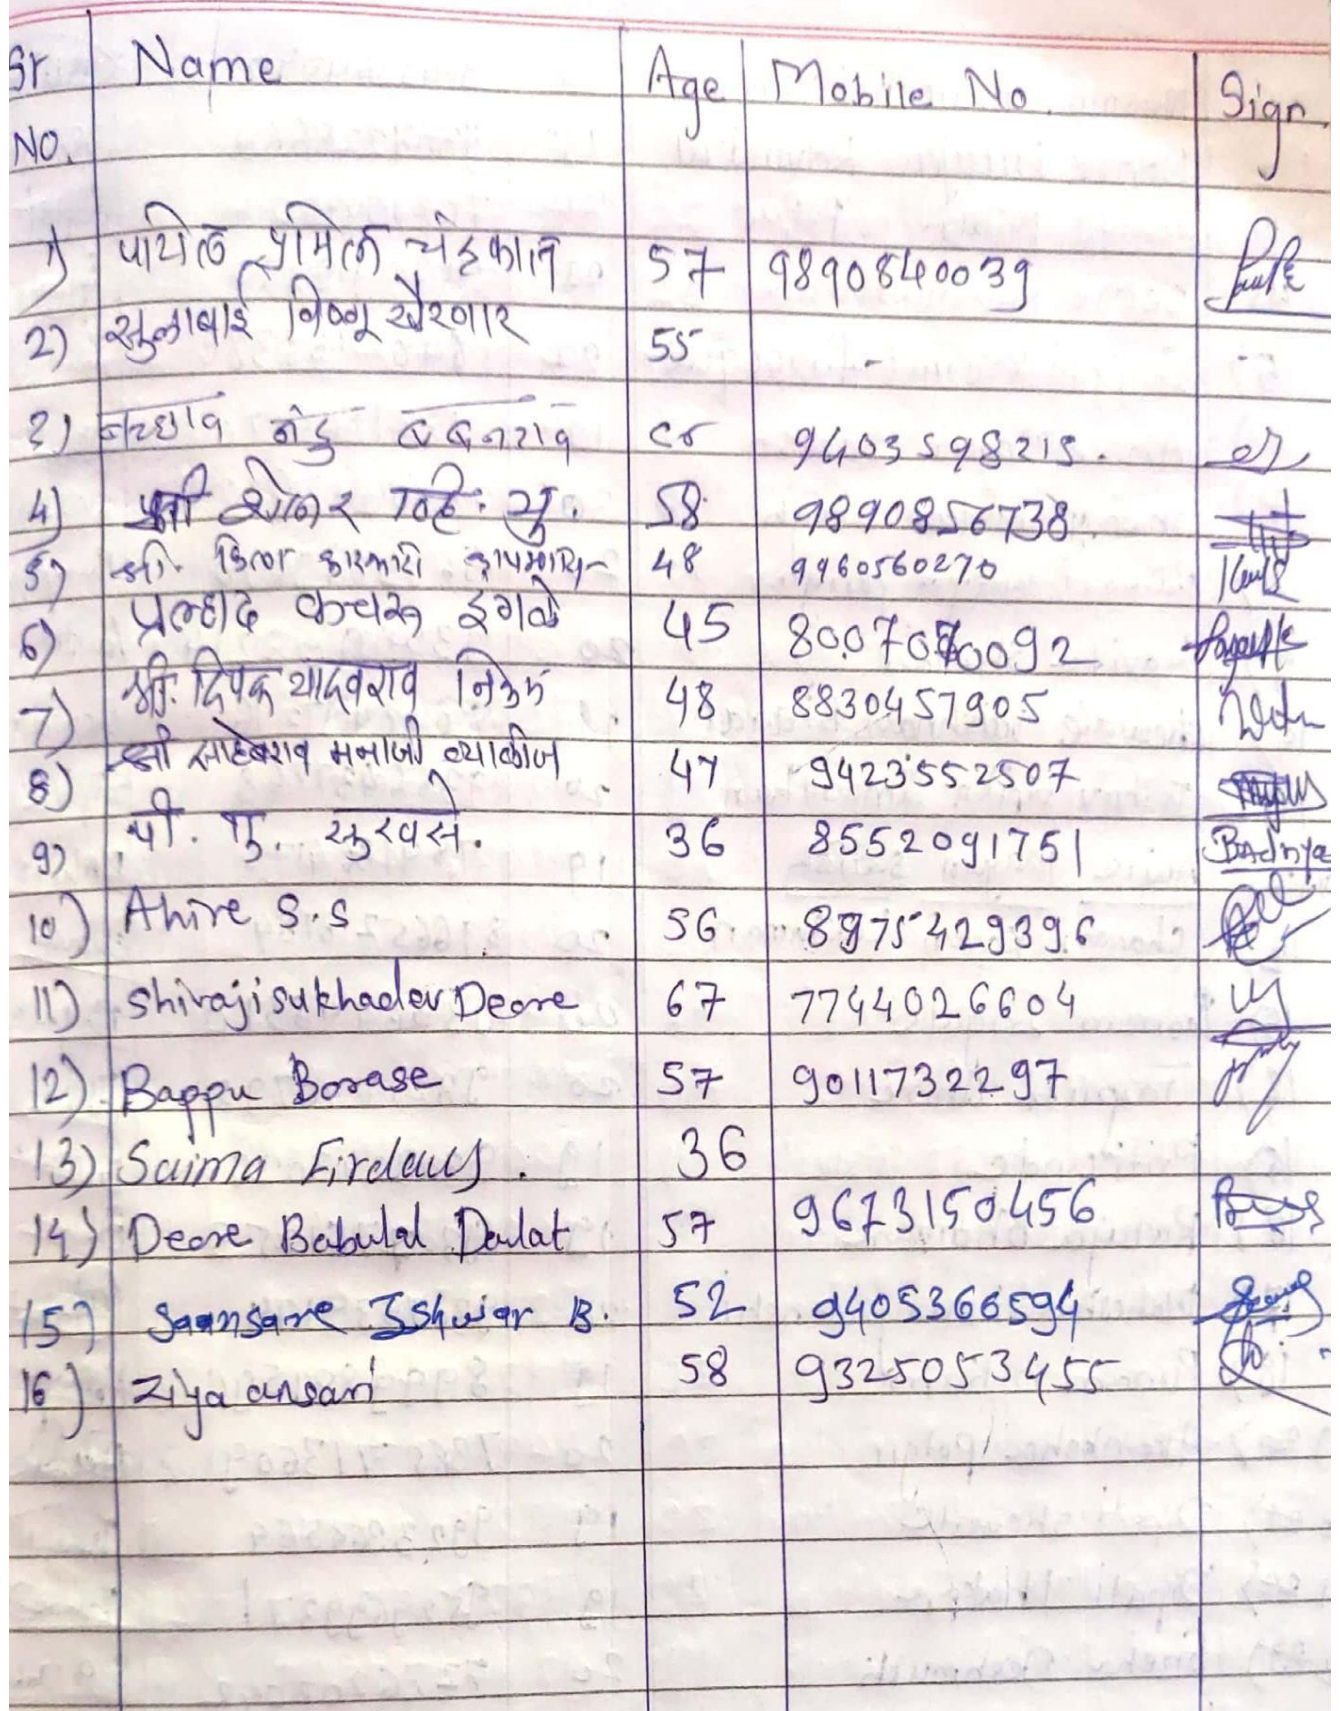 Sr Name Age Mobile No. Sign.
NO.
1) पाटील प्रमिला चंद्रकांत 57 9890840039
2) सुलाबाई विष्णू खैरनार 55 -
55 9403598215.
4) श्री 58 9890856738
5) श्री. 48 9960560270
6) प्रल्हाद कचरू इंगळे 45 8007070092
7) श्री. दिपक यादवराव निकम 48 8830457905
8) श्री साहेबराव मनाजी व्याळीज 47 9423552507
9) पी. यु. सुरवसे. 36 8552091751
10) Ahire S.S 56 8975429396
11) Shivaji sukhadev Deore 67 7744026604
12) Bappu Borase 57 9011732297
13) Saima Firdaus. 36
14) Deore Babulal Daulat 57 9673150456
15) Saansare Ishwar B. 52 9405366594
16) Ziya ansari 58 9325053455